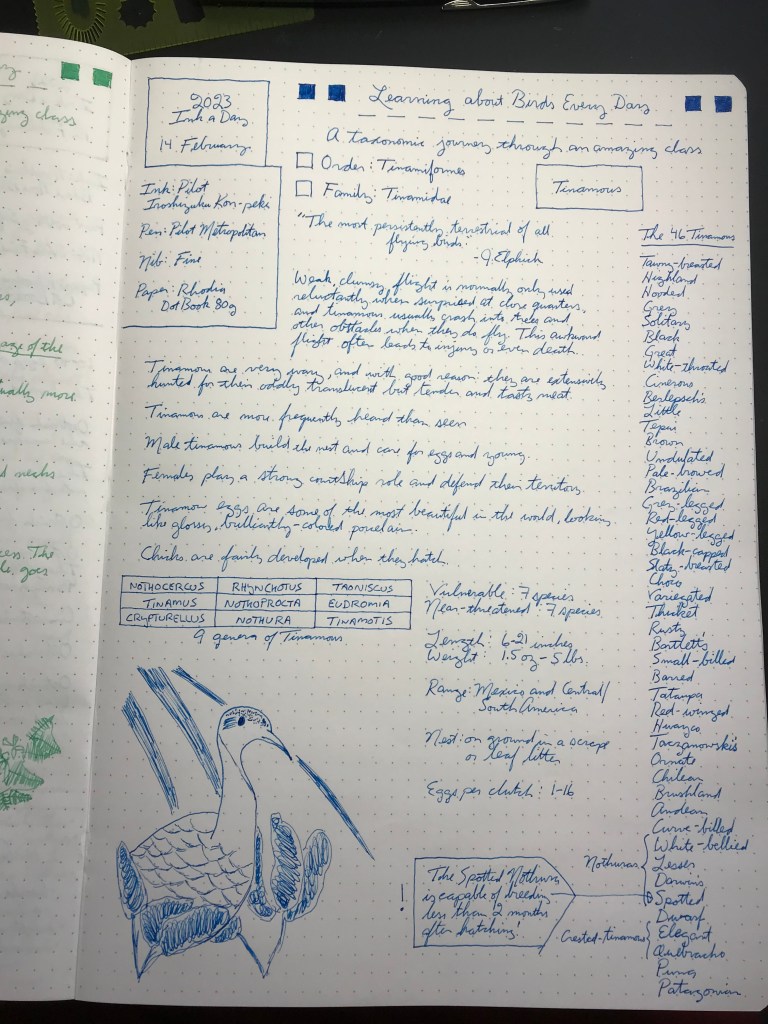 2023
Ink a Day
14 February
Ink: Pilot
Iroshizuku Kon-peki
Pen: Pilot Metropolitan
Nib: Fine
Paper: Rhodia
DotBook 80g
Learning about Birds Every Day
A taxonomic journey through an amazing class
Order: Tinamiformes
Family: Tinamidae
Tinamous
"The most persistently terrestrial of all
flying birds."
- J. Elphick
Weak, clumsy flight is normally only used
reluctantly when surprised at close quarters,
and tinamous usually crash into trees and
other obstacles when they do fly. This awkward
flight often leads to injury or even death.
Tinamous are very wary, and with good reason: they are extensively
hunted for their oddly translucent but tender and tasty meat.
Tinamous are more frequently heard than seen
Male tinamous build the nest and care for eggs and young.
Females play a strong courtship role and defend their territory.
Tinamou eggs are some of the most beautiful in the world, looking
like glossy, brilliantly-colored porcelain.
Chicks are fairly developed when they hatch.
NOTHOCERCUS RHYNCHOTUS TAONISCUS
TINAMUS NOTHOPROCTA EUDROMIA
CRYPTURELLUS NOTHURA TINAMOTIS
9 genera of Tinamous
Vulnerable: 7 species
Near-threatened: 7 species
Length: 6-21 inches
Weight: 1.5 oz - 5 lbs.
Range: Mexico and Central/
South America
Nest: on ground in a scrape
or leaf litter
Eggs per clutch: 1-16
!
The Spotted Nothura
is capable of breeding
less than 2 months
after hatching!
The 46 Tinamous
Tawny-breasted
Highland
Hooded
Grey
Solitary
Black
Great
White-throated
Cinereous
Berlepsch's
Little
Tepui
Brown
Undulated
Pale-browed
Brazilian
Grey-legged
Red-legged
Yellow-legged
Black-capped
Slaty-breasted
Choco
Variegated
Thicket
Rusty
Bartlett's
Small-billed
Barred
Tataupa
Red-winged
Huayco
Taczanowski's
Ornate
Chilean
Brushland
Andean
Curve-billed
Nothuras
White-bellied
Lesser
Darwin's
Spotted
Dwarf
Crested-tinamous
Elegant
Quebracho
Puna
Patagonian